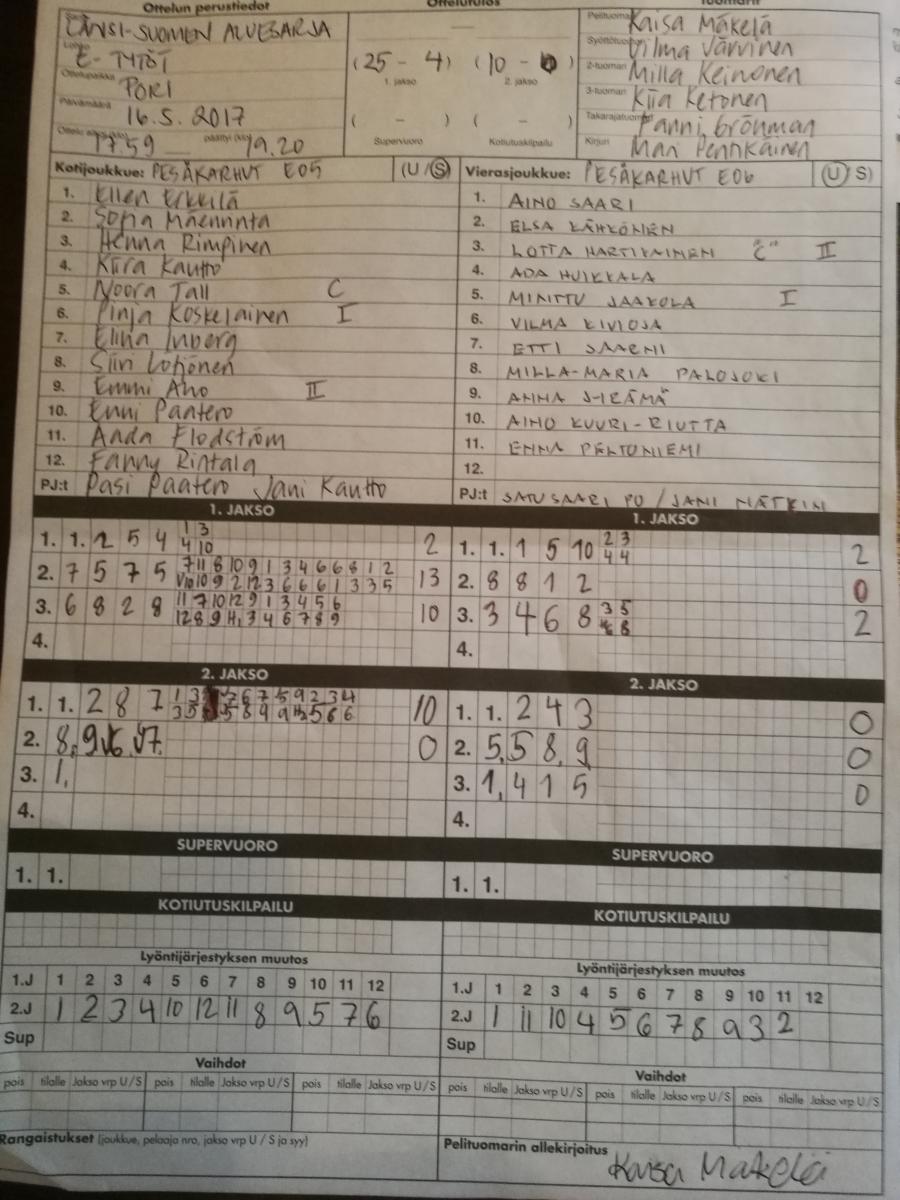 Ottelun perustiedot
LÄNSI-SUOMEN ALUESARJA
Lohko
E-TYTÖT
Ottelupaikka
PORI
Päivämäärä
16.5. 2017
1759 päättyi (klo) 19.20
Ottelutulos
(25 - 4) (10 - 0)
1. jakso 2. jakso
( - ) ( - )
Supervuoro Kotiutuskilpailu
Tuomarit
Pelituomari Kaisa Mäkelä
Vilma Järvinen
2-tuomari Milla Keinonen
3-tuomari Kiia Ketonen
Takarajatuomari Panni Grönman
Kirjuri Mari Pennkäinen
Kotijoukkue: PESÄKARHUT E05 (U/S)
1. Ellen Erkkilä
2. Sofia Mäenrinta
3. Henna Rimpinen
4. Kiira Kautto
5. Noora Tall C
6. Pinja Koskelainen I
7. Elina Inberg
8. Siiri Löhönen
9. Emmi Aho II
10. Enni Paatero
11. Anda Flodström
12. Fanny Rintala
PJ:t Pasi Paatero Jani Kautto
Vierasjoukkue: PESÄKARHUT E06 (U/S)
1. AINO SAARI
2. ELSA KÄHKÖNEN
3. LOTTA HARTIKAINEN "C" II
4. ADA HUIKKALA
5. MINTTU JAAKOLA I
6. VILMA KIVIOJA
7. ETTI SAARNI
8. MILLA-MARIA PALOJOKI
9. ANNA SIRÄMÄ
10. AINO KUURI-RIUTTA
11. ENNA PELTONIEMI
12.
PJ:t SATU SAARI PO / JANI
1. JAKSO
1. 1. 1 2 5 4 1 3 2
4 10
2. 7 5 7 5 7 11 8 10 9 1 3 4 6 6 8 1 2 13
10 9 2 12 3 6 6 6 1 3 3 5
3. 6 8 2 8 11 7 10 12 9 1 3 4 5 6 10
12 8 9 11 1 3 4 6 7 8 9
4.
1. JAKSO
1. 1. 1 5 10 2 3 2
4 4
2. 8 8 1 2 0
3. 3 4 6 8 3 5 2
8
4.
2. JAKSO
1. 1. 2 8 7 1 3 2 6 7 5 9 2 3 4 10
3 5 5 8 9 9 12 5 6 6
2. 8, 9 0
3. 1,
4.
2. JAKSO
1. 1. 2 4 3 0
2. 5, 5 8, 9 0
3. 1, 4 1 5 0
4.
SUPERVUORO
1. 1.
SUPERVUORO
1. 1.
KOTIUTUSKILPAILU
KOTIUTUSKILPAILU
Lyöntijärjestyksen muutos
1.J 1 2 3 4 5 6 7 8 9 10 11 12
2.J 1 2 3 4 10 12 11 8 9 5 7 6
Sup
Lyöntijärjestyksen muutos
1.J 1 2 3 4 5 6 7 8 9 10 11 12
2.J 1 11 10 4 5 6 7 8 9 3 2
Sup
Vaihdot
pois tilalle Jakso vrp U/S pois tilalle Jakso vrp U/S pois tilalle Jakso vrp U/S
Vaihdot
pois tilalle Jakso vrp U/S pois tilalle Jakso vrp U/S pois tilalle Jakso vrp U/S
Rangaistukset (joukkue, pelaaja nro, jakso vrp U / S ja syy)
Pelituomarin allekirjoitus Kaisa Mäkelä